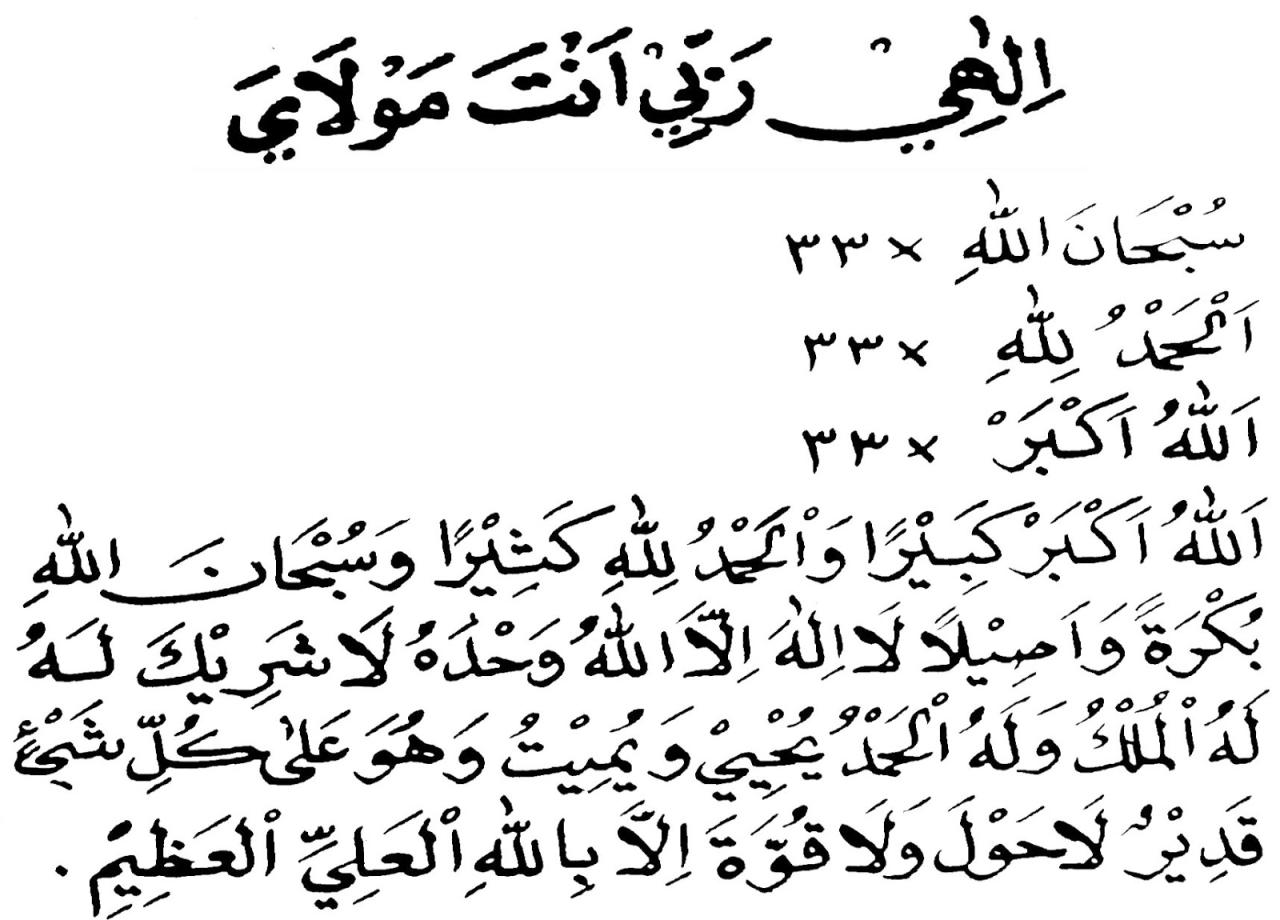 اِلٰهِيْ رَبِّيْ اَنْتَ مَوْلَايَ
سُبْحَانَ اللّٰهِ × ٣٣
اَلْحَمْدُ لِلّٰهِ × ٣٣
اَللّٰهُ اَكْبَرْ × ٣٣
اَللّٰهُ اَكْبَرْ كَبِيْرًا وَالْحَمْدُ لِلّٰهِ كَثِيْرًا وَسُبْحَانَ اللّٰهِ
بُكْرَةً وَاَصِيْلًا لَا اِلٰهَ اِلَّا اللّٰهُ وَحْدَهُ لَا شَرِيْكَ لَهُ
لَهُ الْمُلْكُ وَلَهُ الْحَمْدُ يُحْيِيْ وَيُمِيْتُ وَهُوَ عَلٰى كُلِّ شَيْئٍ
قَدِيْرٌ لَا حَوْلَ وَلَا قُوَّةَ اِلَّا بِاللّٰهِ الْعَلِيِّ الْعَظِيْمِ .